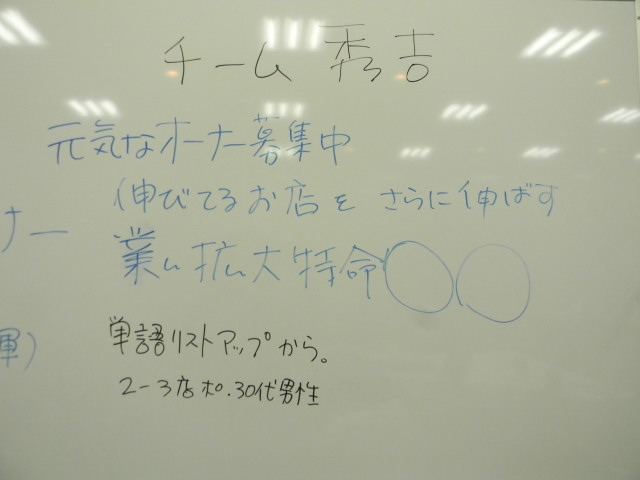 チーム 秀吉
元気なオーナー募集中
伸びてるお店を さらに伸ばす
ナー
拡大特命〇〇
単語リストアップから。
2-3店ホ.30代男性